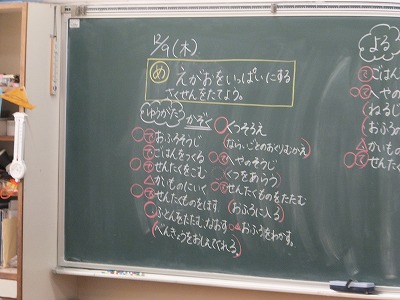 12/9(木)
め えがおをいっぱいにする
さくせんをたてよう。
ゆうがた かぞく
おふろそうじ
て ごはんをつくる
て せんたくをこむ
△ かいものにいく
せんたくものをほす
ふとんをたたむ、なおす
(べんきょうをおしえてくれる。)
くつそろえ
(ならいごとのおくりむかえ)
て へやのそうじ
くつをあらう
て せんたくものをたたむ
(おふろに入る)
△ おふろをわかす。
よる
て ごはん
て へやの
(ねるじ
(おふろ
△ かいもの
て せんたく